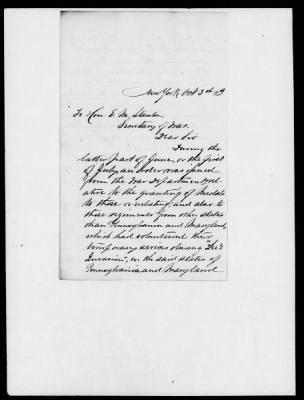 New York, Oct 3rd 63
To Hon E. M. Stanton
Secretary of War.
Dear Sir
During the
latter part of June, or the first
of July, an order was issued
from the War Department, rel-
ative to the granting of medals
to those re-enlisting, and also to
those regiments from other states
than Pennsylvania and Maryland,
which had volunteered their
temporary services during "the
Invasion", in the said states of
Pennsylvania and Maryland